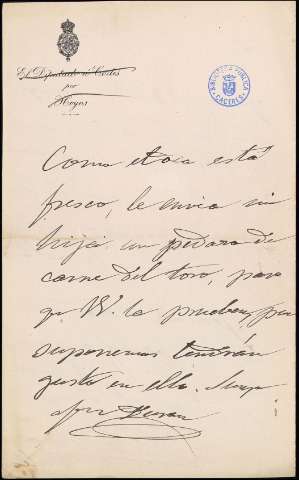 El Diputado a Cortes
por
Hoyos
BIBLIOTECA PUBLICA
CACERES
Como está
fresco, le envia mi
hija un pedazo de
carne del toro, para
qe V. la prueben, pues
suponemos tendrán
gusto en ello. Suyo